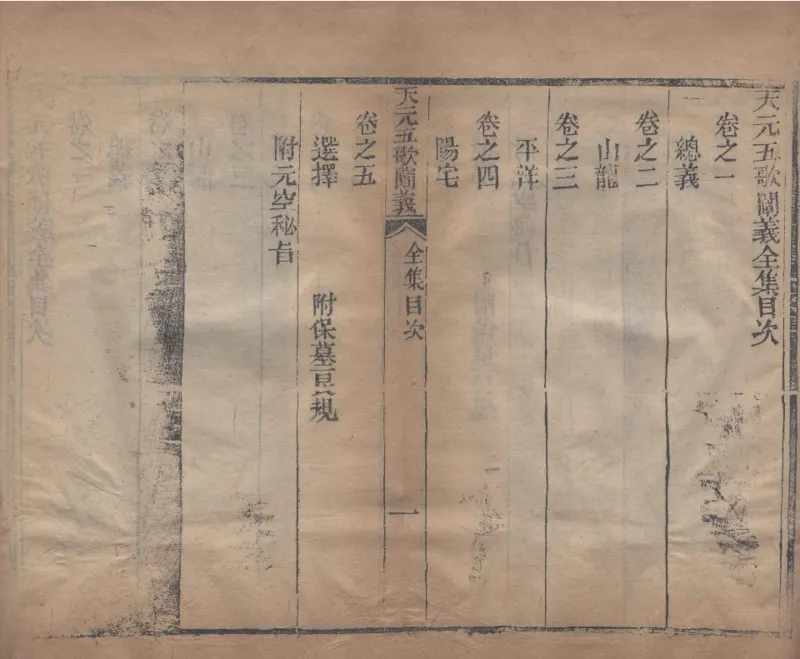 天元五歌闡義全集目次
卷之一
總義
卷之二
山龍
卷之三
平洋
卷之四
陽宅
天元五歌闡義 全集目次 一
卷之五
選擇 附保墓良規
附元空秘旨